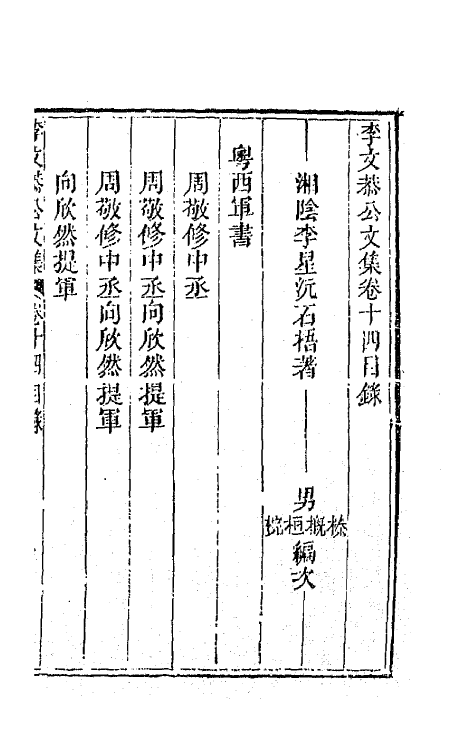 李文恭公文集卷十四目錄
湘陰李星沅石梧著 男杭槪桓梡編次
粵西軍書
周敬修中丞
周敬修中丞向欣然提軍
周敬修中丞向欣然提軍
向欣然提軍
李文恭公文集 卷十四目錄